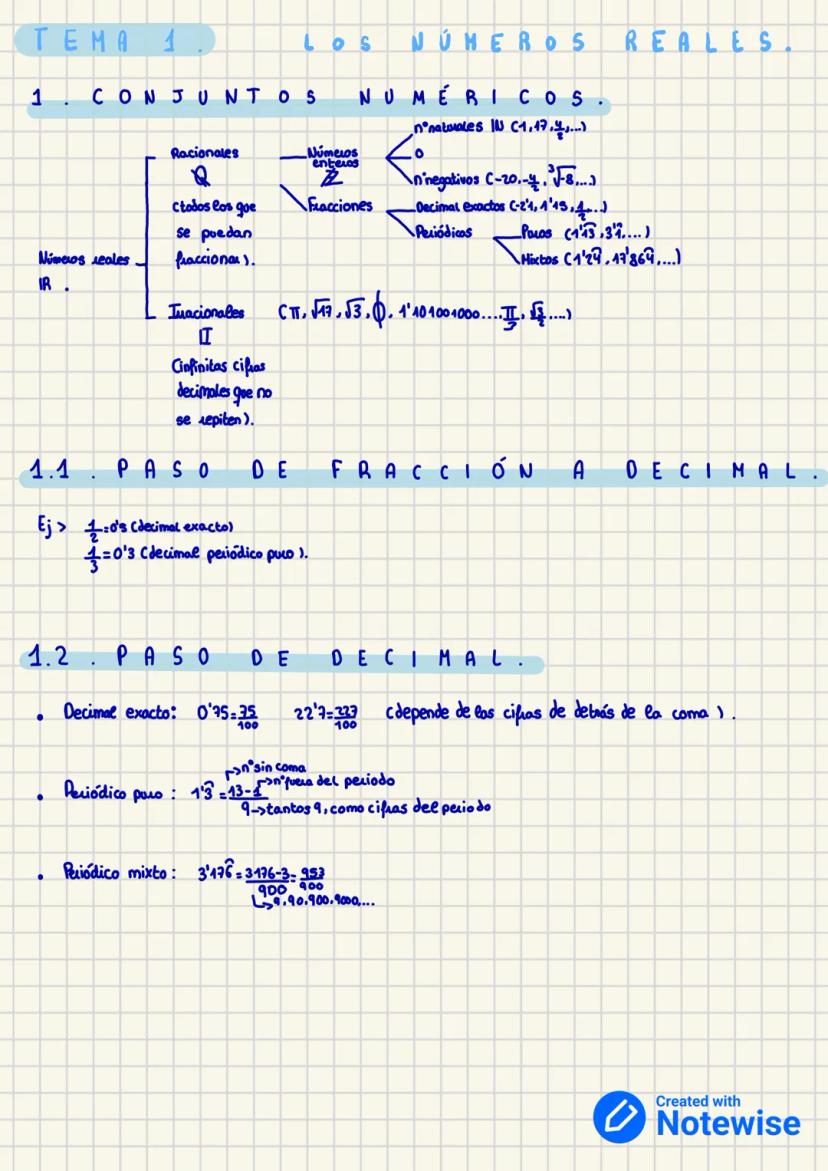 TEMA 1. LOS NÚMEROS REALES.
1. CONJUNTOS NUMÉRICOS.
Números reales
IR.
Racionales
Q
(todos los que
se puedan
fraccionar).
Números
enteros
Z
nº naturales IN (1, 17, 4/2, ...)
0
nº negativos (-20, -4/2, ³√-8, ...)
Fracciones
Decimal exactos (-2'1, 1'15, 1/2, ...)
Periódicos
Puros (1'13, 3'1, ...)
Mixtos (1'24, 17'864, ...)
Irracionales
II
(infinitas cifras
decimales que no
se repiten).
(π, √17, √3, ϕ, 1'101001000..., π/3, √3/2, ...)
1.1. PASO DE FRACCIÓN A DECIMAL.
Ej > 1/2 = 0'5 (decimal exacto)
1/3 = 0'3 (decimal periódico puro).
1.2. PASO DE DECIMAL.
• Decimal exacto: 0'75 = 75/100 22'7 = 227/100 (depende de las cifras de detrás de la coma).
→ nº sin coma
→ nº fuera del periodo
• Periódico puro: 1'3̂ = 13-1
9 → tantos 9, como cifras del periodo
• Periódico mixto: 3'176̂ = 3176-3/900 = 953/900
↳ 9, 90, 900, 9000, ...
Created with
Notewise